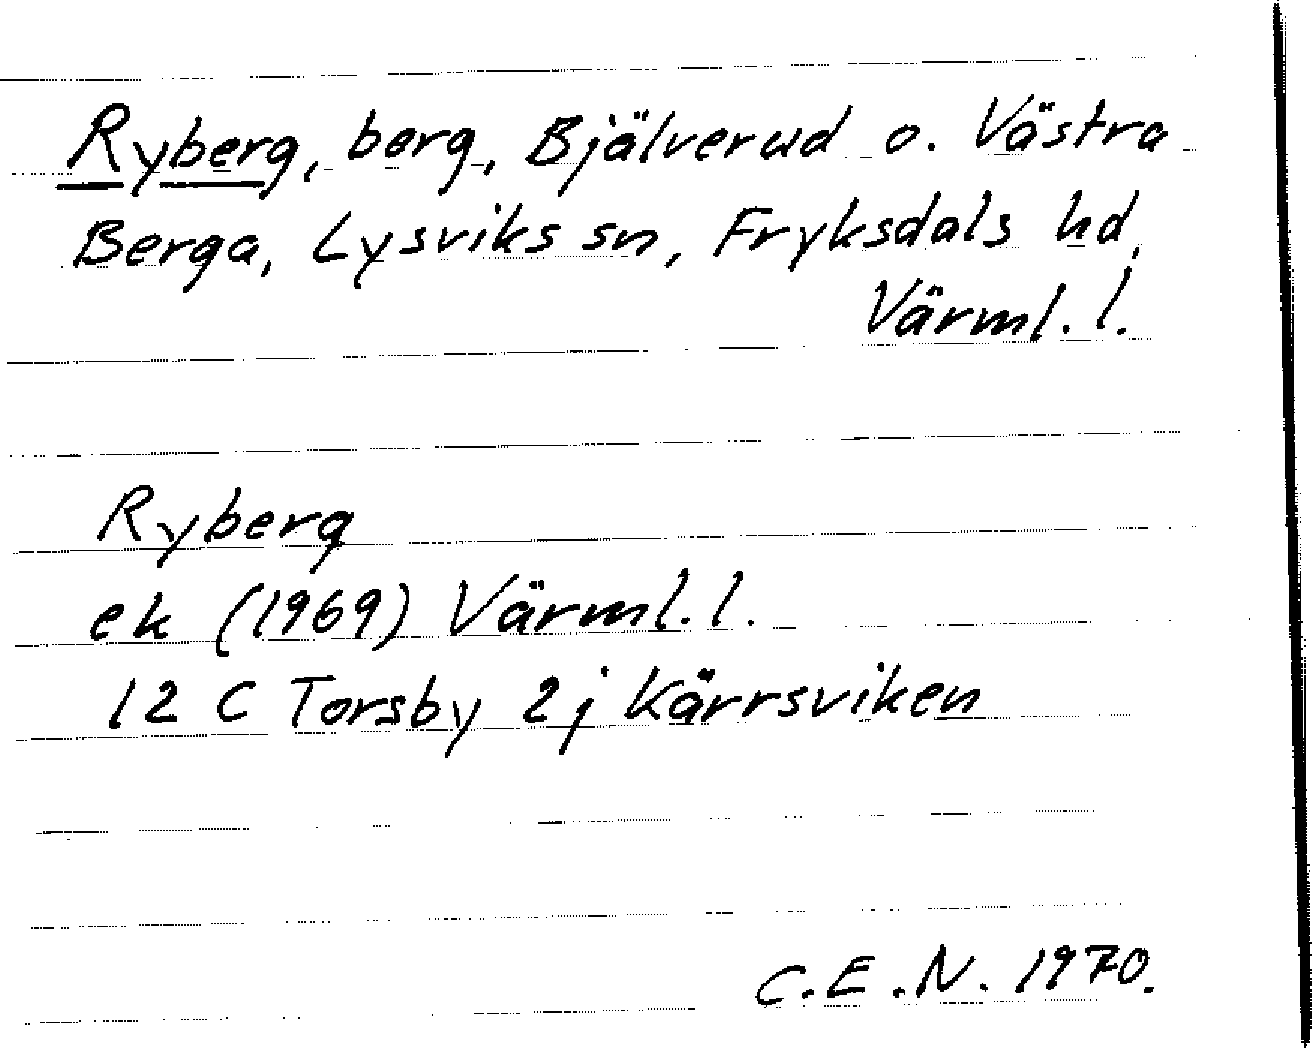 Ryberg, berg, Bjälverud o. Västra
Berga, Lysviks sn, Fryksdals hd,
Värml. l.
Ryberg
ek (1969) Värml. l.
12 C Torsby 2j Kärrsviken
C.E.N. 1970.